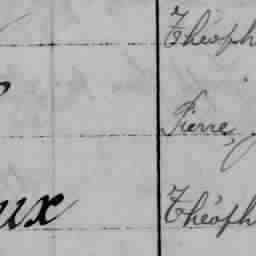 Théoph
Pierre,
ux Théoph